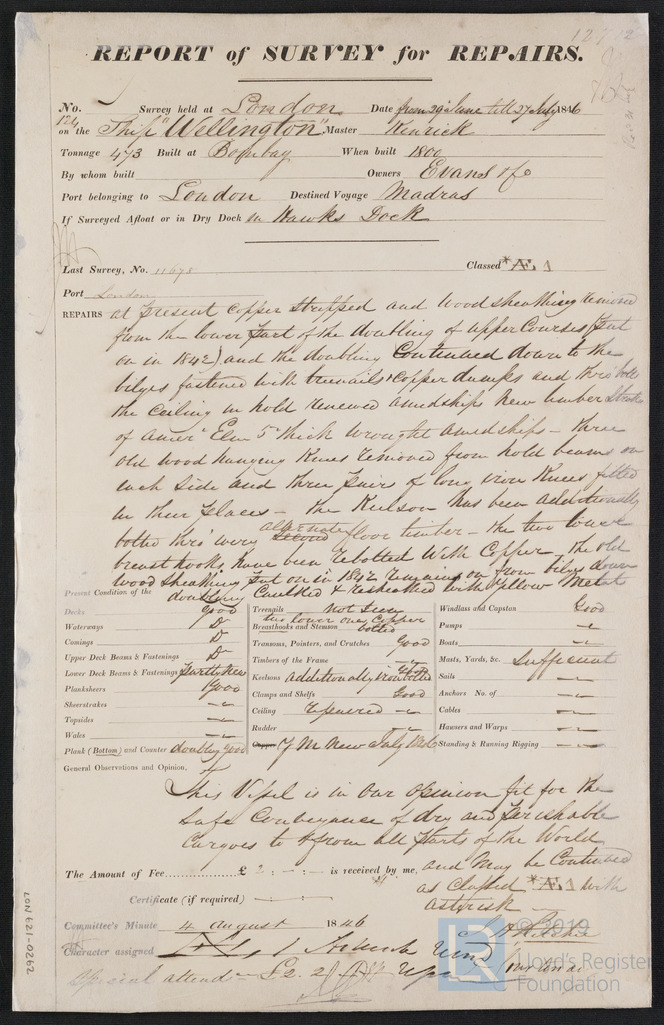 12712
REPORT of SURVEY for REPAIRS.
No. 124 Survey held at London Date from 29th June till 27 July 1846
on the Ship "Wellington" Master Kenrick
Tonnage 473 Built at Bombay When built 1800
By whom built Owners Evans & Co
Port belonging to London Destined Voyage Madras
If Surveyed Afloat or in Dry Dock in Hawks Dock
Last Survey, No. 11678 Classed *Æ 1
Port London
REPAIRS at present copper stripped and wood sheathing removed
from the lower part of the doubling of upper Courses (put
on in 1842) and the doubling Continued down to the
bilges fastened with treenails & copper dumps and thro bolts
the Ceiling in hold renewed amidships New limber Strakes
of Amer Elm 5 in thick wrought amidships - three
old wood hanging Knees removed from hold beams on
each side and three pairs of long iron Knees fitted
in their places - the Keelson has been additionally
bolted thro' every alternate floor timber - the two lower
breasthooks have been rebolted with Copper - the old
wood sheathing put on in 1842 remains on from bilges down
Present Condition of the doubling Caulked & resheathed with Yellow Metal
Decks good
Waterways Do
Comings Do
Upper Deck Beams & Fastenings Do
Lower Deck Beams & Fastenings partly new
Planksheers Good
Sheerstrakes
Topsides
Wales
Plank (Bottom) and Counter doubling good
Treenails Not Seen
Breasthooks and Stemson two lower ones Copper bolted
Transoms, Pointers, and Crutches Good
Timbers of the Frame
Keelsons additionally iron bolted Good
Clamps and Shelfs Good
Ceiling repaired
Rudder
Copper Y M New July 1846
Windlass and Capston Good
Pumps
Boats
Masts, Yards, &c. Sufficient
Sails
Anchors No. of
Cables
Hawsers and Warps
Standing & Running Rigging
General Observations and Opinion,
This Vessel is in our opinion fit for the
Safe Conveyance of dry and perishable
Cargoes to & from all parts of the World
and May be Continued
The Amount of Fee £ 2 : - : - is received by me,
as Classed *Æ 1 with
asterisk
Certificate (if required)
Committee's Minute 4 August 1846
Character assigned
Special attend £2. 2
LON 621-0262
© 2019
Lloyd's Register
Foundation